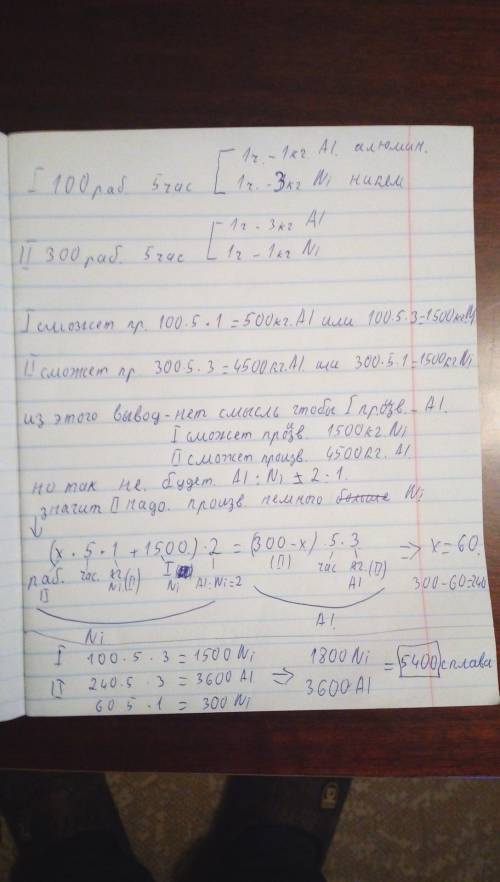 1ч. - 1кг Al. алюмин.
I 100 раб. 5 час
1ч. - 3кг Ni никел
1ч - 3кг Al
II 300 раб. 5 час
1ч - 1кг Ni
I сможет пр. 100·5·1=500кг.Al или 100·5·3=1500кг Ni
II сможет пр 300·5·3=4500кг.Al или 300·5·1=1500кг Ni
из этого вывод-нет смысль чтобы I произв. - Al.
I сможет произв. 1500кг. Ni
II сможет произв. 4500кг. Al.
но так не. будет Al : Ni = 2 : 1.
значит II надо. произв. немного больше Ni
(x · 5 · 1 + 1500) · 2 = (300-x) · 5 · 3 ⇒ x=60.
раб. час. кг. I (II) час кг.(II) 300-60=240
II Ni(II) Ni Al:Ni=2 Al
Ni Al.
I 100·5·3=1500Ni 1800Ni
II 240·5·3=3600Al ⇒ = 5400 сплава
60 5·1=300Ni 3600Al